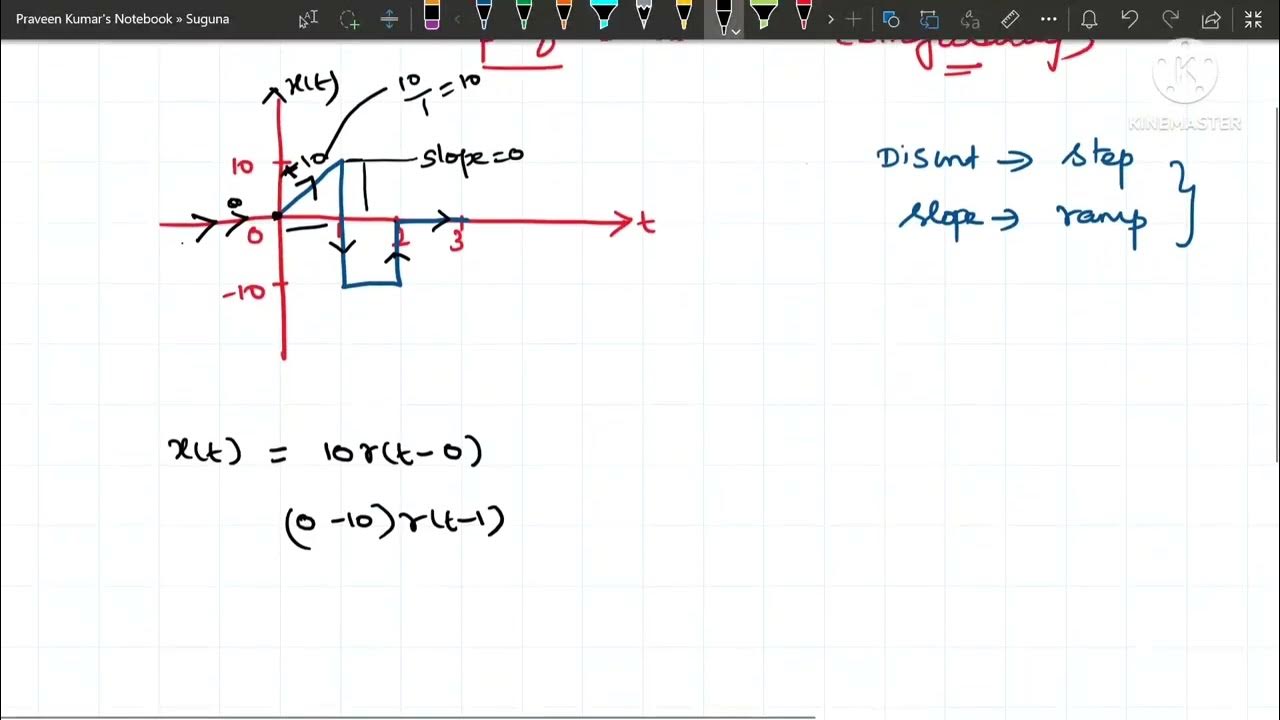 Praveen Kumar's Notebook » Suguna
KINEMASTER
x(t)
10/1 = 10
+10
slope=0
10
0
0
1
2
3
t
-10
Discont → step
slope → ramp
x(t) = 10r(t-0)
(0-10)r(t-1)